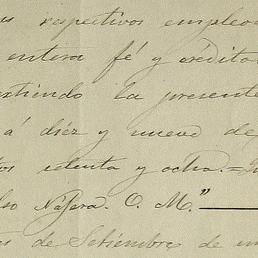 respectivos empleo
entera fé y crédito
extiendo la presente
á diéz y nueve de
setenta y ocho.=
so Nájera. O. M."
de Setiembre de mi